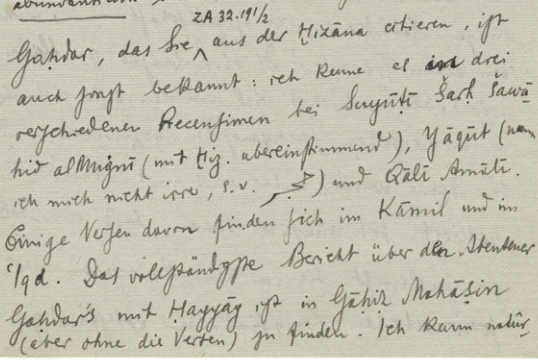 ZA 32.19 1/2
Ǧaḥdar, das Sie aus der Ḫizāna citieren, ist
auch sonst bekannt: ich kenne es in drei
verschiedenen Recensionen bei Suyūṭī Šarḥ Šawā
hid al Muġnī (mit Ḫiz. übereinstimmend), Yāqūt (wenn
ich mich nicht irre, s.v. ) und Qālī Amālī.
Einige Verse davon finden sich im Kāmil und im
ʿIqd. Das vollständigste Bericht über den Abenteuer
Ǧaḥdar's mit Ḥaǧǧāǧ ist in Ǧāḥiẓ Maḥāsin
(aber ohne die Verse) zu finden. Ich kann natür